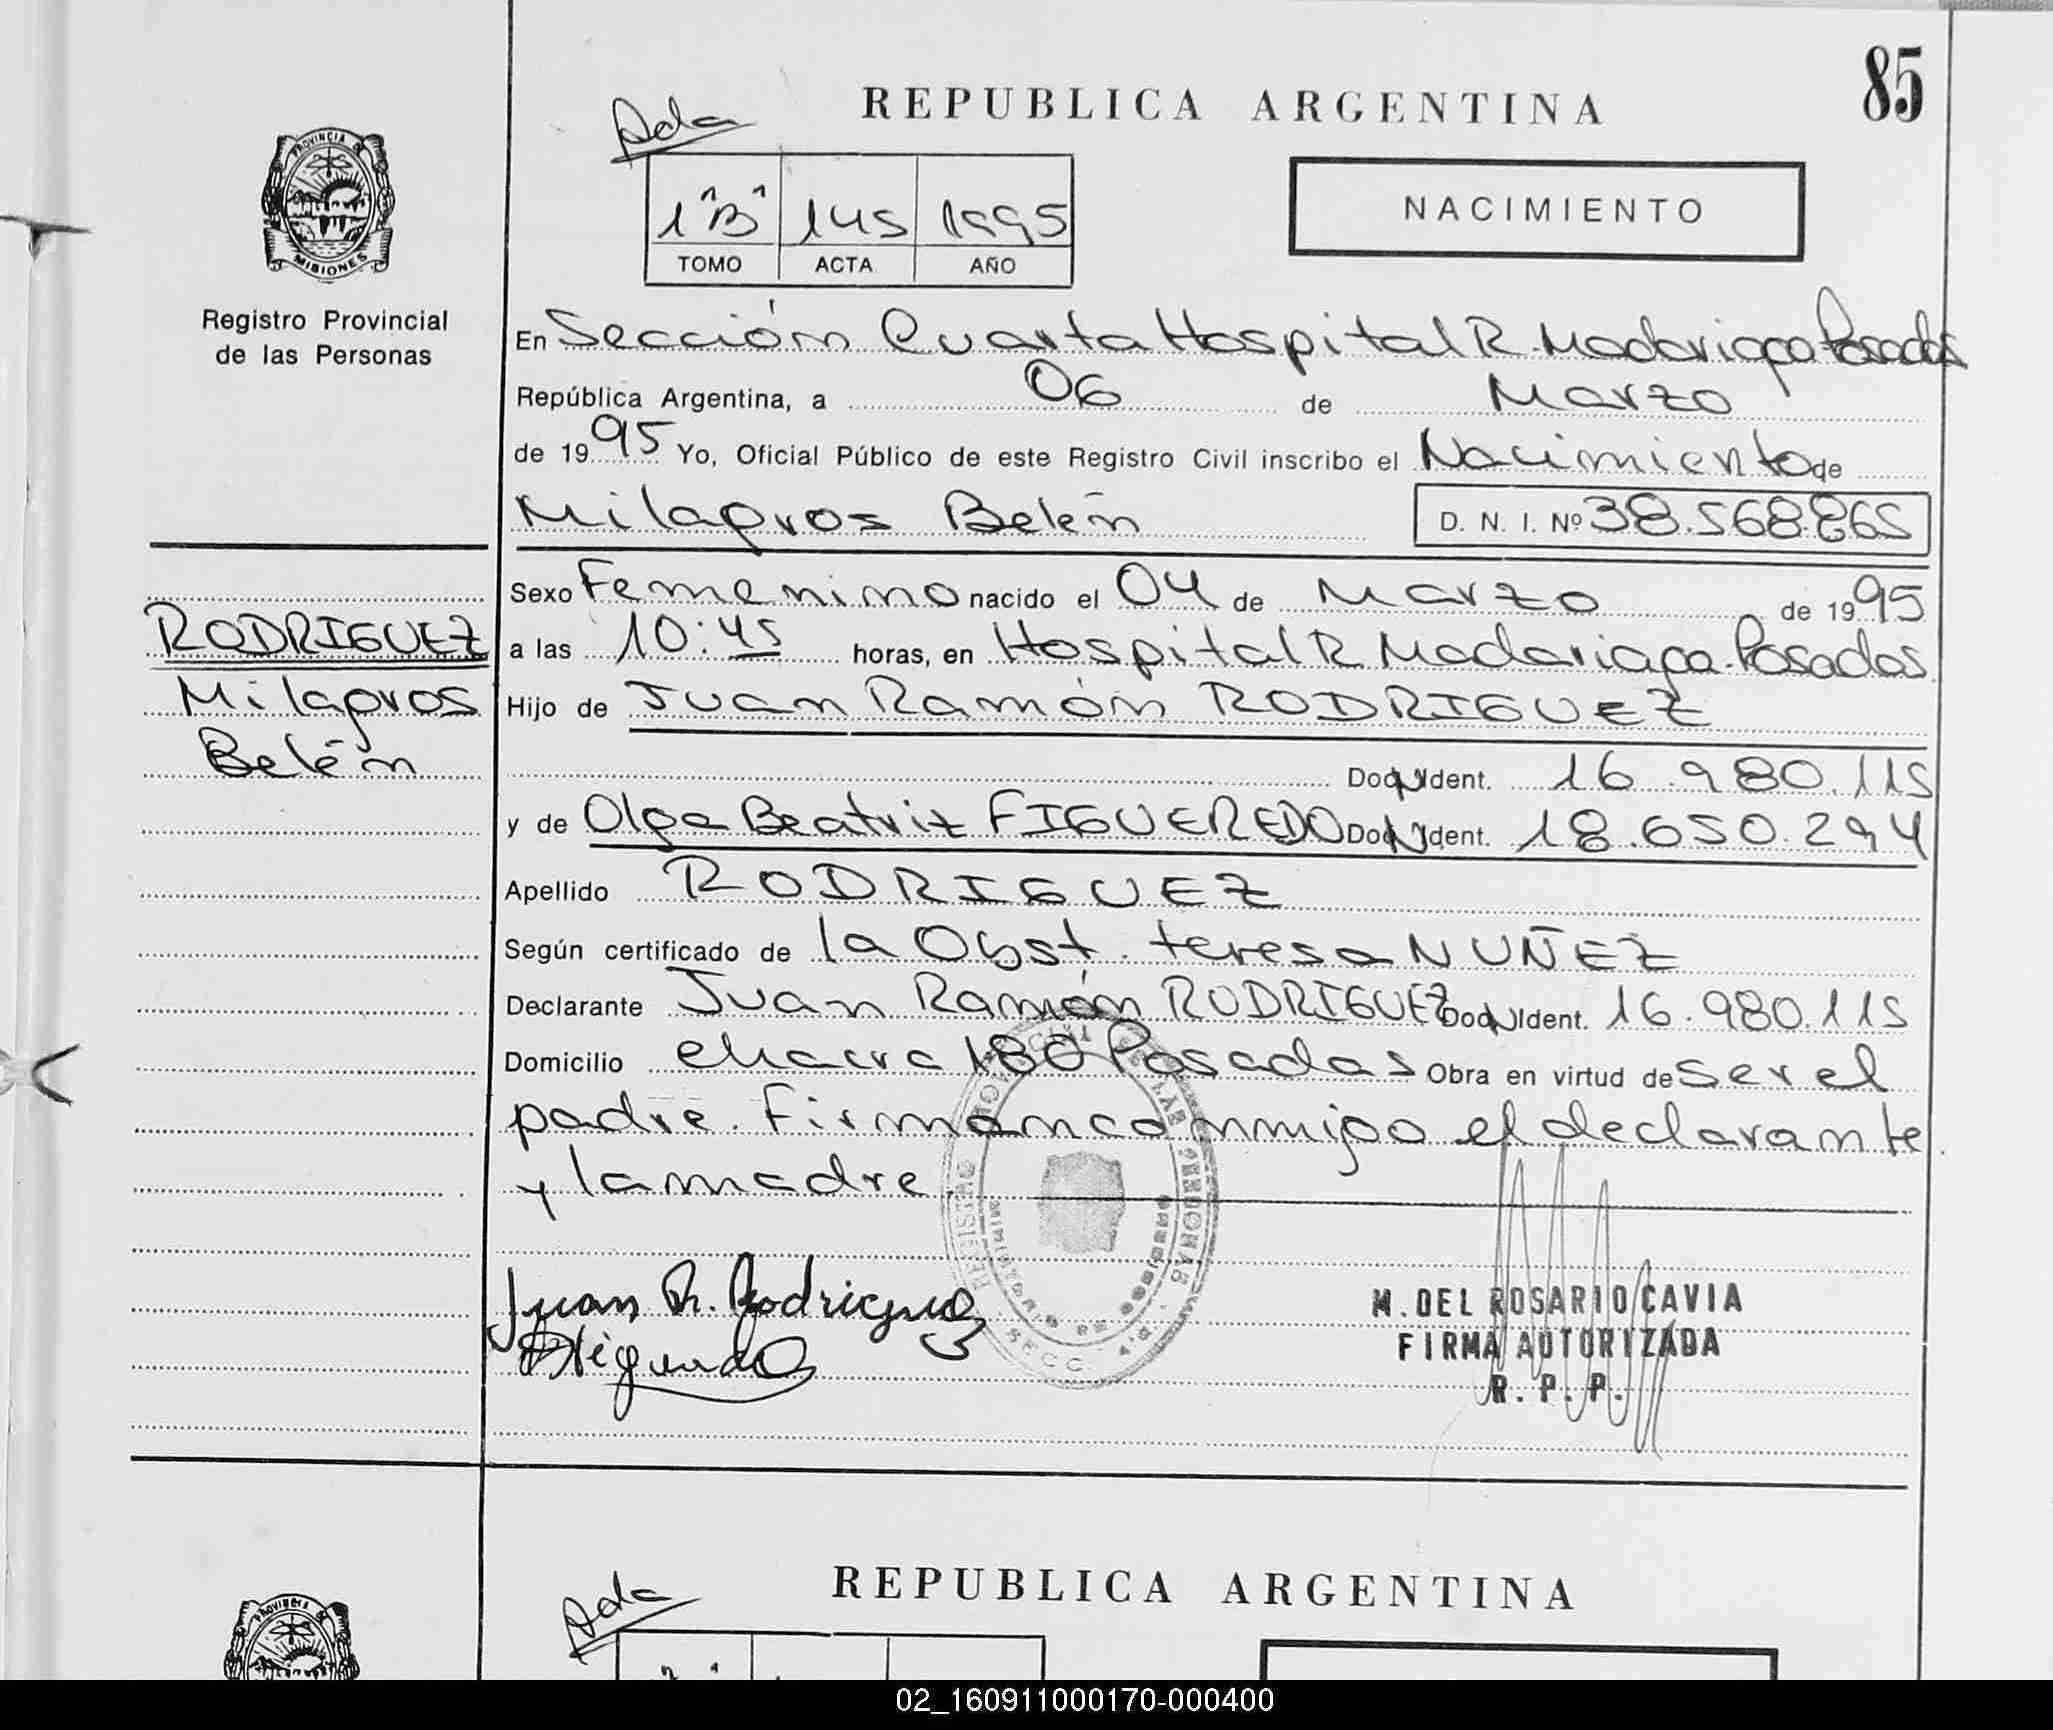 85
REPUBLICA ARGENTINA
Ada
PROVINCIA DE
MISIONES
1 "B" 145 1995
TOMO ACTA AÑO
NACIMIENTO
Registro Provincial
de las Personas
En Sección Cuarta Hospital R. Madariaga Posadas
República Argentina, a 06 de Marzo
de 1995 Yo, Oficial Público de este Registro Civil inscribo el Nacimiento de
Milagros Belén D. N. I. Nº 38.568.865
RODRIGUEZ
Milagros
Belén
Sexo Femenino nacido el 04 de Marzo de 1995
a las 10:45 horas, en Hospital R Madariaga. Posadas
Hijo de Juan Ramón RODRIGUEZ
Doc. N Ident. 16.980.115
y de Olga Beatriz FIGUEREDO Doc. N Ident. 18.650.294
Apellido RODRIGUEZ
Según certificado de la Obst. teresa NUÑEZ
Declarante Juan Ramón RODRIGUEZ Doc. N Ident. 16.980.115
Domicilio chacra 180 Posadas Obra en virtud de ser el
padre. Firman conmigo el declarante
y la madre.
Juan R. Rodriguez
M. DEL ROSARIO CAVIA
FIRMA AUTORIZADA
R. P. P.
REPUBLICA ARGENTINA
Ada
PROVINCIA DE
02_160911000170-000400